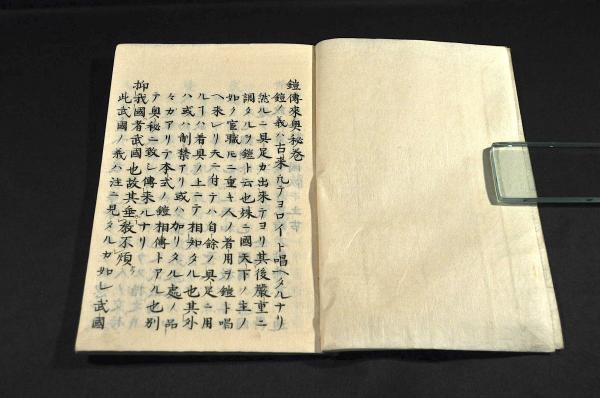 鎧傳來奥秘巻
鎧ノ義ハ古来ヨロイト唱ヘタルナリ
然ルニ具足ガ出来テヨリ其後嚴重ニ
調タルヲ鎧ト云也殊ニ國天下ノ主
如ノ官職ニ重キ人ノ着用ヲ鎧ト唱
ヘ来レリ夫ニ付テハ自餘ノ具足ニ用
ルハ着具ノ上ニテ相知タル也其外
ハ或ハ制禁アリ或ハ加リタル處ノ品
々ガアリテ本式ノ鎧相傳トアル也別
テ奥秘ニ致シ傳来ルナリ
抑我國者武國也故其垂教不煩
此武國ノ義ハ注ニ見タルガ如シ武國